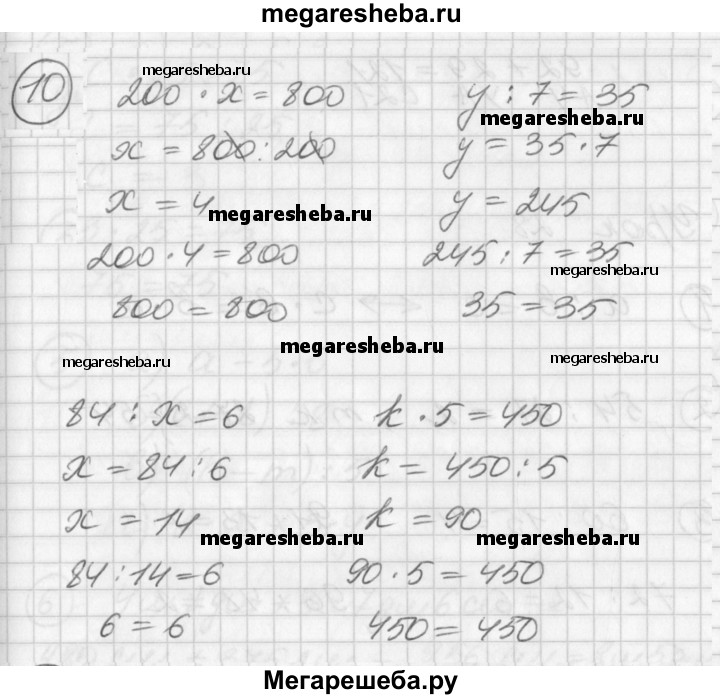 megaresheba.ru
10
megaresheba.ru
200 · x = 800
x = 800 : 200
x = 4
200 · 4 = 800
800 = 800
y : 7 = 35
megaresheba.ru
y = 35 · 7
y = 245
245 : 7 = 35
35 = 35
megaresheba.ru
megaresheba.ru
megaresheba.ru
megaresheba.ru
megaresheba.ru
84 : x = 6
x = 84 : 6
x = 14
84 : 14 = 6
6 = 6
k · 5 = 450
k = 450 : 5
k = 90
90 · 5 = 450
450 = 450
megaresheba.ru
megaresheba.ru
Мегарешеба.ру